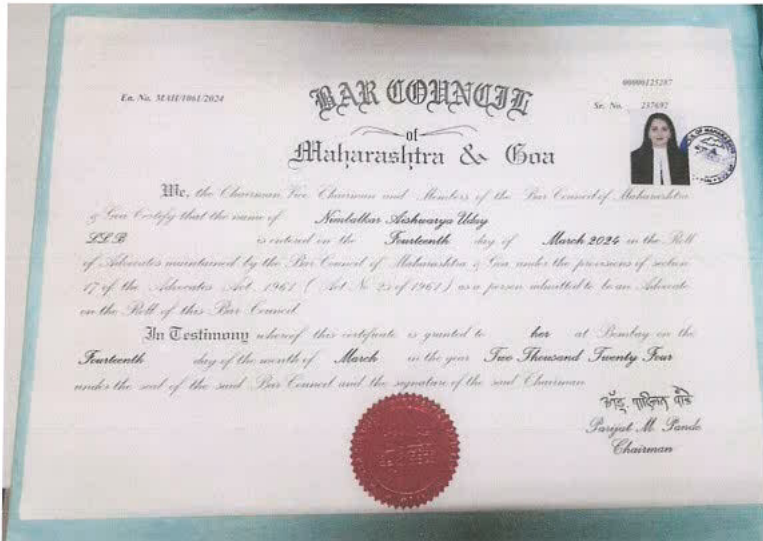 En. No. MAH/1061/2024
00000125287
Sr. No. 237692
BAR COUNCIL
of
Maharashtra & Goa
We, the Chairman Vice Chairman and Members of the Bar Council of Maharashtra
& Goa Certify that the name of Nimbalkar Aishwarya Uday
LLB is entered in the Fourteenth day of March 2024 in the Roll
of Advocates maintained by the Bar Council of Maharashtra & Goa under the provisions of section
17 of the Advocates Act, 1961 ( Act No 25 of 1961 ) as a person admitted to be an Advocate
on the Roll of this Bar Council
In Testimony whereof this certificate is granted to her at Bombay on the
Fourteenth day of the month of March in the year Two Thousand Twenty Four
under the seal of the said Bar Council and the signature of the said Chairman
Parijat M. Pande
Chairman